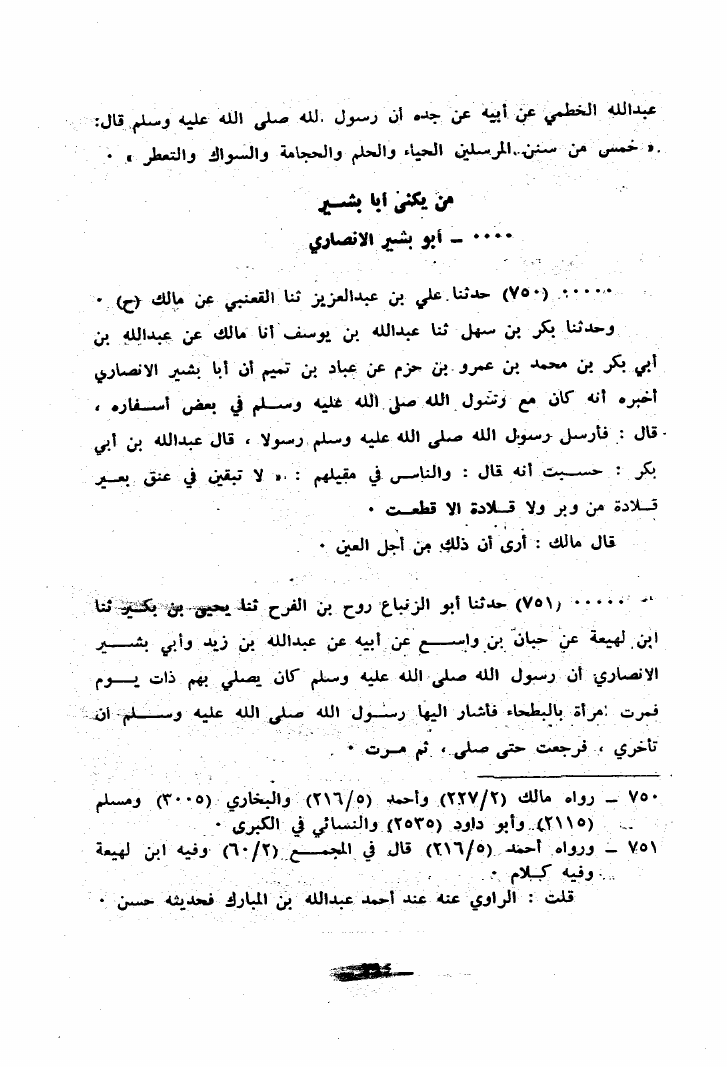 عبدالله الخطمي عن أبيه عن جده أن رسول الله صلى الله عليه وسلم قال:
« خمس من سنن المرسلين الحياء والحلم والحجامة والسواك والتعطر » ٠
من يكنى أبا بشير
٠٠٠٠ ــ أبو بشير الانصاري
٠٠٠٠٠ (٧٥٠) حدثنا علي بن عبدالعزيز ثنا القعنبي عن مالك (ح) ٠
وحدثنا بكر بن سهل ثنا عبدالله بن يوسف أنا مالك عن عبدالله بن
أبي بكر بن محمد بن عمرو بن حزم عن عباد بن تميم أن أبا بشير الانصاري
أخبره أنه كان مع رسول الله صلى الله عليه وسلم في بعض أسفاره ،
قال : فأرسل رسول الله صلى الله عليه وسلم رسولا ، قال عبدالله بن أبي
بكر : حسبت أنه قال : والناس في مقيلهم : « لا تبقين في عنق بعير
قلادة من وبر ولا قلادة الا قطعت ٠
قال مالك : أرى أن ذلك من أجل العين ٠
٠٠٠٠٠ (٧٥١) حدثنا أبو الزنباع روح بن الفرح ثنا يحيى بن بكير ثنا
ابن لهيعة عن حبان بن واسع عن أبيه عن عبدالله بن زيد وأبي بشير
الانصاري أن رسول الله صلى الله عليه وسلم كان يصلي بهم ذات يوم
فمرت امرأة بالبطحاء فأشار اليها رسول الله صلى الله عليه وسلم أن
تأخري ، فرجعت حتى صلى ، ثم مرت ٠
٧٥٠ ــ رواه مالك (٢٢٧/٢) وأحمد (٢١٦/٥) والبخاري (٣٠٠٥) ومسلم
(٢١١٥) وأبو داود (٢٥٣٥) والنسائي في الكبرى ٠
٧٥١ ــ ورواه أحمد (٢١٦/٥) قال في المجمع (٦٠/٢) وفيه ابن لهيعة
وفيه كلام ٠
قلت : الراوي عنه عند أحمد عبدالله بن المبارك فحديثه حسن ٠